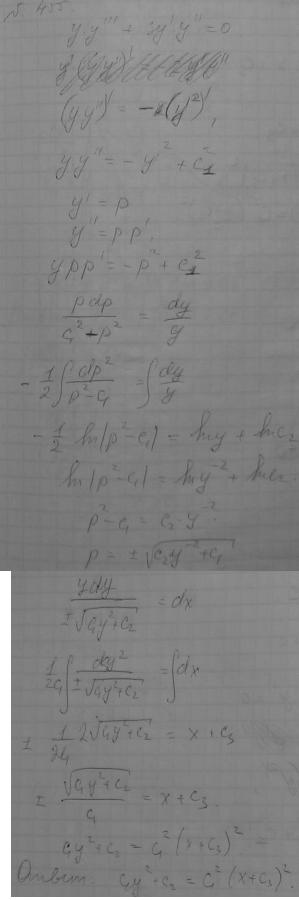 № 455.
y y''' + 3y' y'' = 0
(y y'')' = -(y'²)',
y y'' = - y'² + c₁²
y' = p
y'' = p p',
y p p' = - p² + c₁²
p dp / (c₁² - p²) = dy / y
- 1/2 ∫ dp² / (p² - c₁) = ∫ dy / y
- 1/2 ln|p² - c₁| = ln y + ln c₂
ln|p² - c₁| = ln y⁻² + ln c₂
p² - c₁ = c₂ · y⁻²
p = ± √(c₂ y⁻² + c₁)
y dy / ± √(c₁y² + c₂) = dx
1/2c₁ ∫ dc₁y² / ± √(c₁y² + c₂) = ∫ dx
± 1/2c₁ 2 √(c₁y² + c₂) = x + c₃
± √(c₁y² + c₂) / c₁ = x + c₃.
c₁y² + c₂ = c₁² (x + c₃)²
Ответ. c₁y² + c₂ = c₁² (x + c₃)².